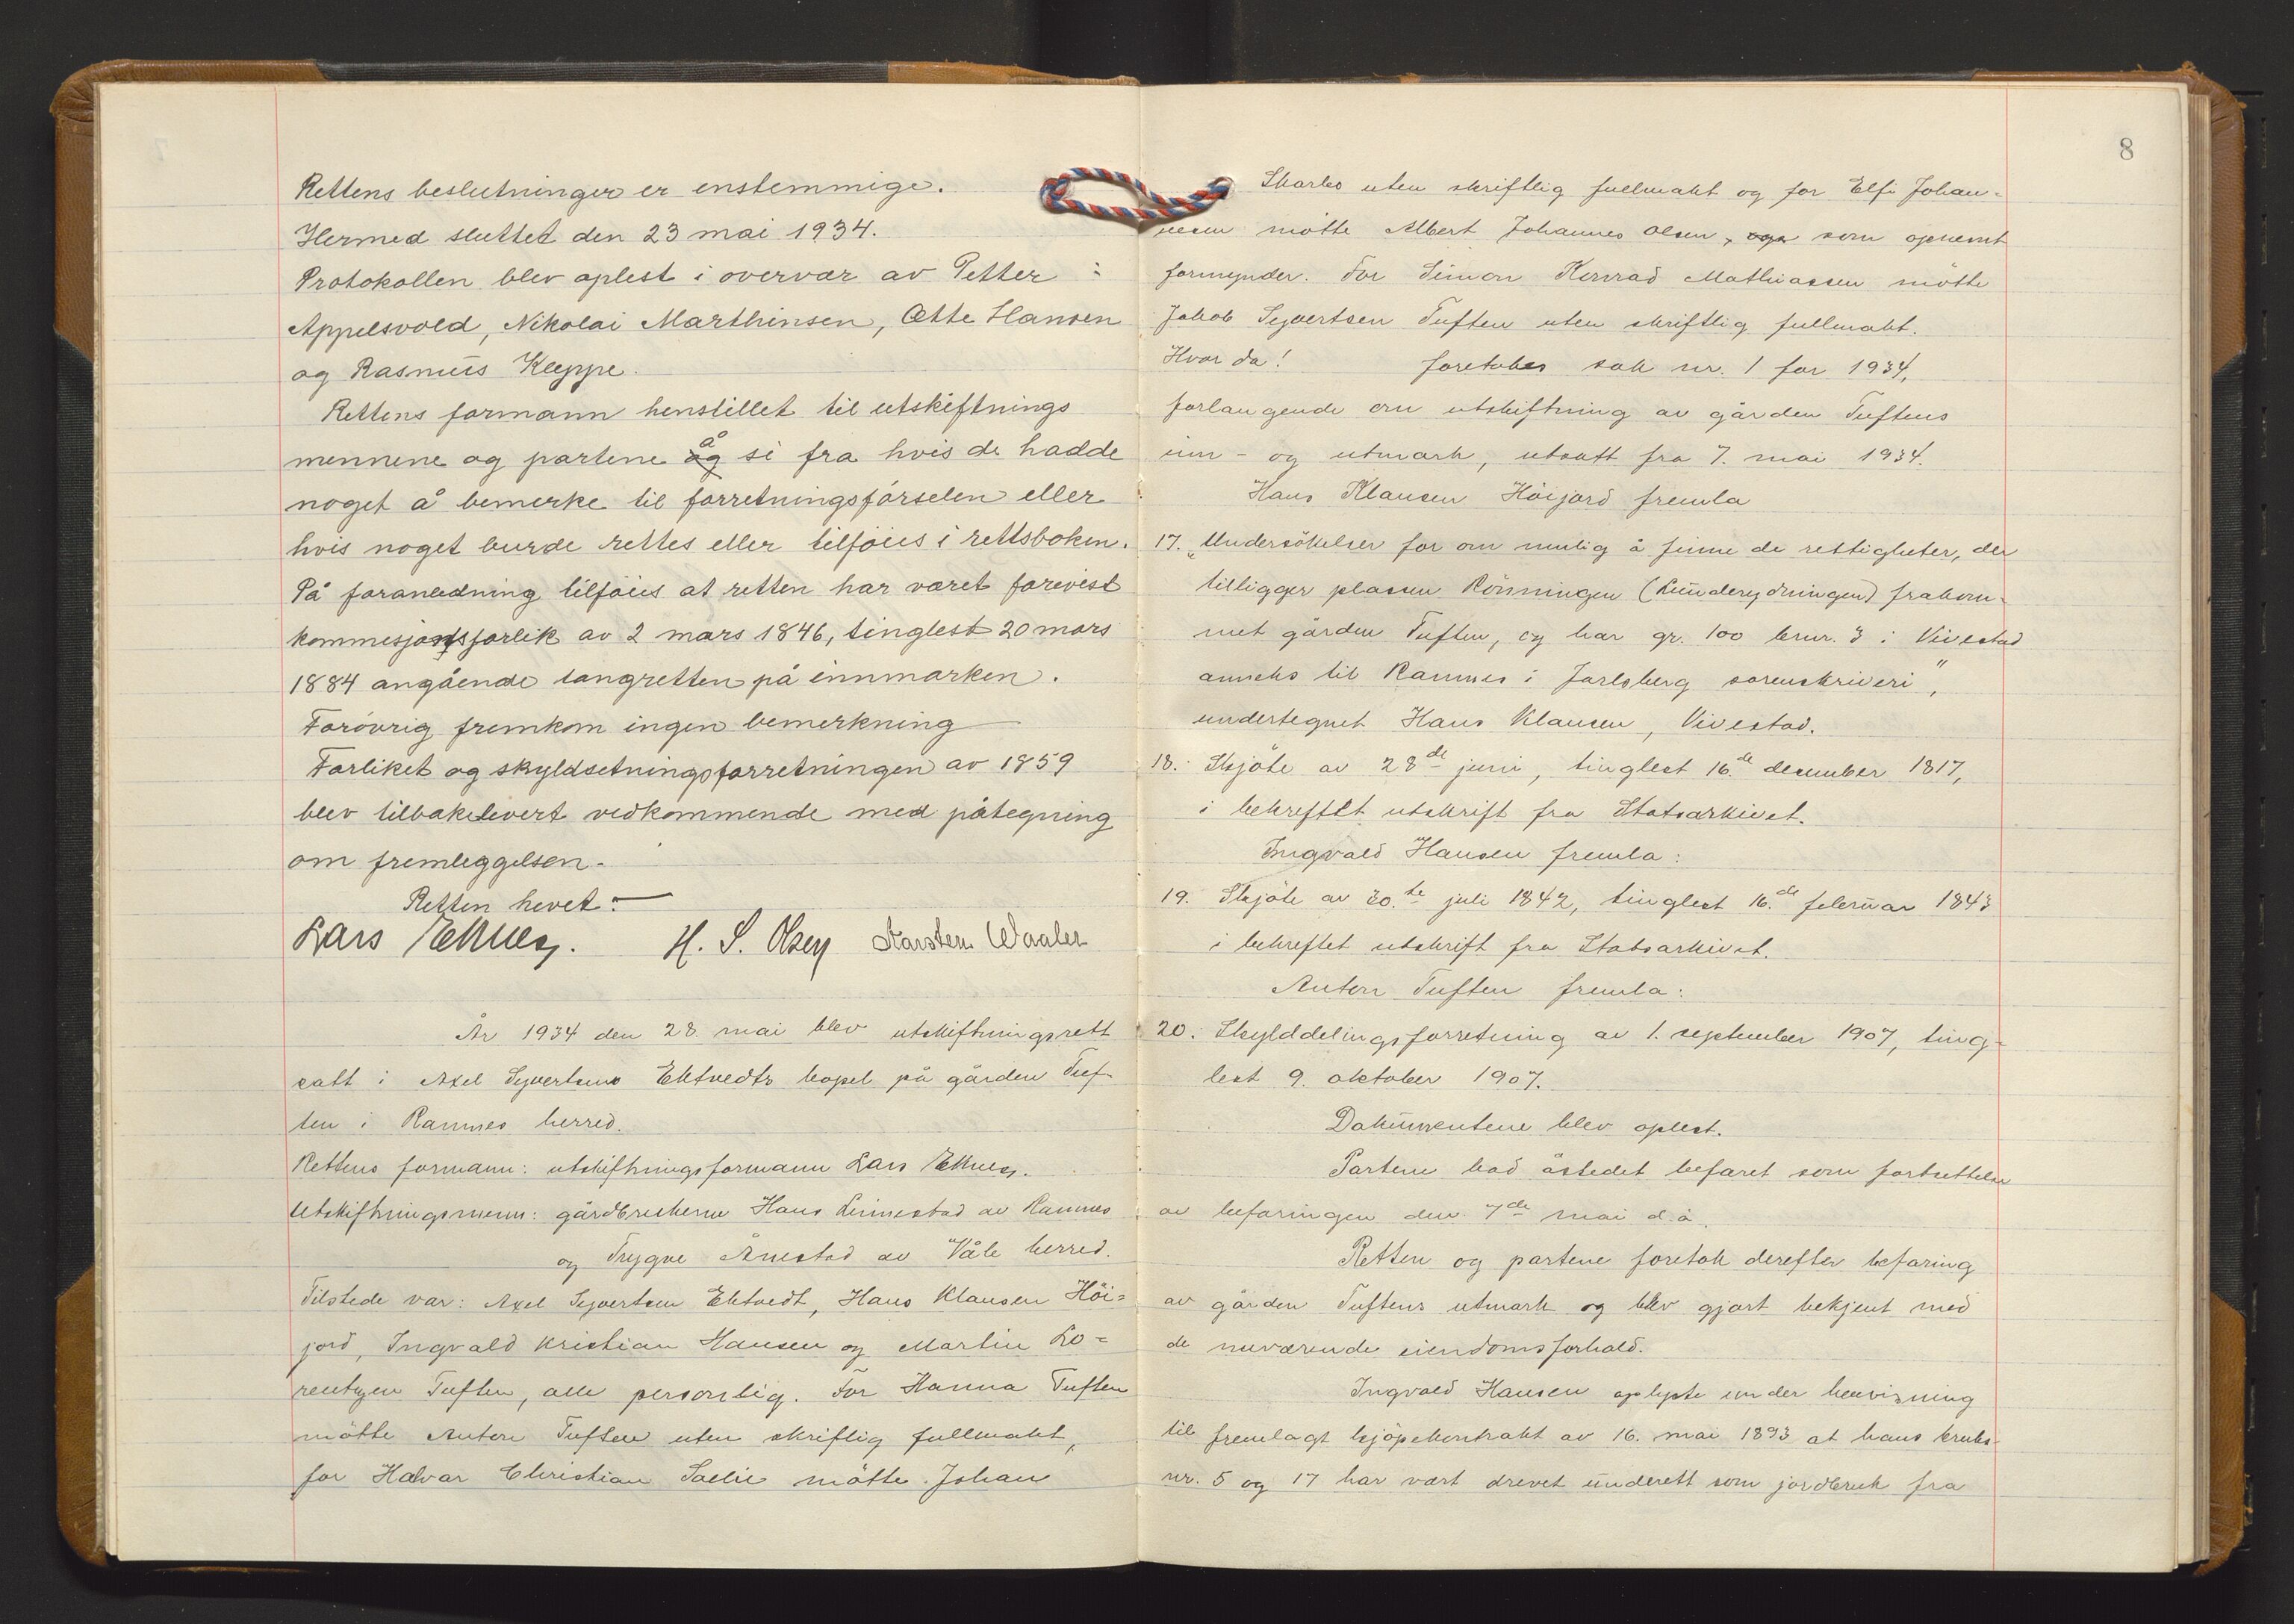 Rettens beslutninger er enstemmige.
Hermed sluttet den 23 mai 1934.
Protokollen blev oplest i overvær av Petter
Appelsvold, Nikolai Marthinsen, Otte Hansen
og Rasmus Kleppe.
Rettens formann henstillet til utskiftnings
mennene og partene å si fra hvis de hadde
noget å bemerke til forretningsförselen eller
hvis noget burde rettes eller tilföies i rettsboken.
På foranledning tilföies at retten har været forevist
kommesjonsforlik av 2 mars 1846, tinglest 20 mars
1884 angående tangretten på innmarken.
Forövrig fremkom ingen bemerkning
Forliket og skyldsetningsforretningen av 1859
blev tilbakelevert vedkommende med påtegning
om fremleggelsen.
Retten hevet.
Lars H. S. Olsen Karsten Waaler
År 1934 den 28. mai blev utskiftningsrett
satt i Axel Syvertsens Ektvedts bopel på gården Tuf-
ten i Ramnes herred.
Rettens formann: utskiftningsformann Lars
Utskiftningsmenn: gårdbrukerne Hans Linnestad av Ramnes
og Trygve Årnestad av Våle herred.
Tilstede var: Axel Syvertsen Ektvedt, Hans Klausen Höi=
jord, Ingvald Kristian Hansen og Martin Lo=
rentzen Tuften, alle personlig. For Hanna Tuften
mötte Anton Tuften uten skriftlig fullmakt,
for Halvar Christian Sælie mötte Johan
8
uten skriftlig fullmakt og for Elfi Johan=
nesen mötte Albert Johannes Olsen, som opnevnt
formynder. For Simon Konrad Mathiassen mötte
Jakob Syvertsen Tuften uten skriftlig fullmakt.
Hvor da! foretokes sak nr. 1 for 1934,
forlangende om utskiftning av gården Tuftens
inn- og utmark, utsatt fra 7. mai 1934.
Hans Klausen Höijord fremla
17. „Undersökelser for om mulig å finne de rettigheter, der
tilligger plassen Rönningen (Underydningen) frakom-
met gården Tuften, og har gr. 100 brnr. 3 i Vivestad
anneks til Ramnes i Jarlsberg sorenskriveri",
undertegnet Hans Klausen, Vivestad.
18. Skjöte av 28de juni, tinglest 16.de desember 1817,
i bekreftet utskrift fra Statsarkivet.
Ingvald Hansen fremla:
19. Skjöte av 30.te juli 1842, tinglest 16.de februar 1843
i bekreftet utskrift fra Statsarkivet.
Anton Tuften fremla:
20. Skylddelingsforretning av 1. september 1907, ting-
lest 9. oktober 1907.
Dokumentene blev oplest.
Partene bad åstedet befaret som fortsettelse
av befaringen den 7de mai d.å.
Retten og partene foretok derefter befaring
av gården Tuftens utmark og blev gjort bekjent med
de nuværende eiendomsforhold.
Ingvald Hansen oplyste under henvisning
til fremlagt kjöpekontrakt av 16. mai 1893 at hans bruks-
nr. 5 og 17 har vært drevet underett som jordbruk fra